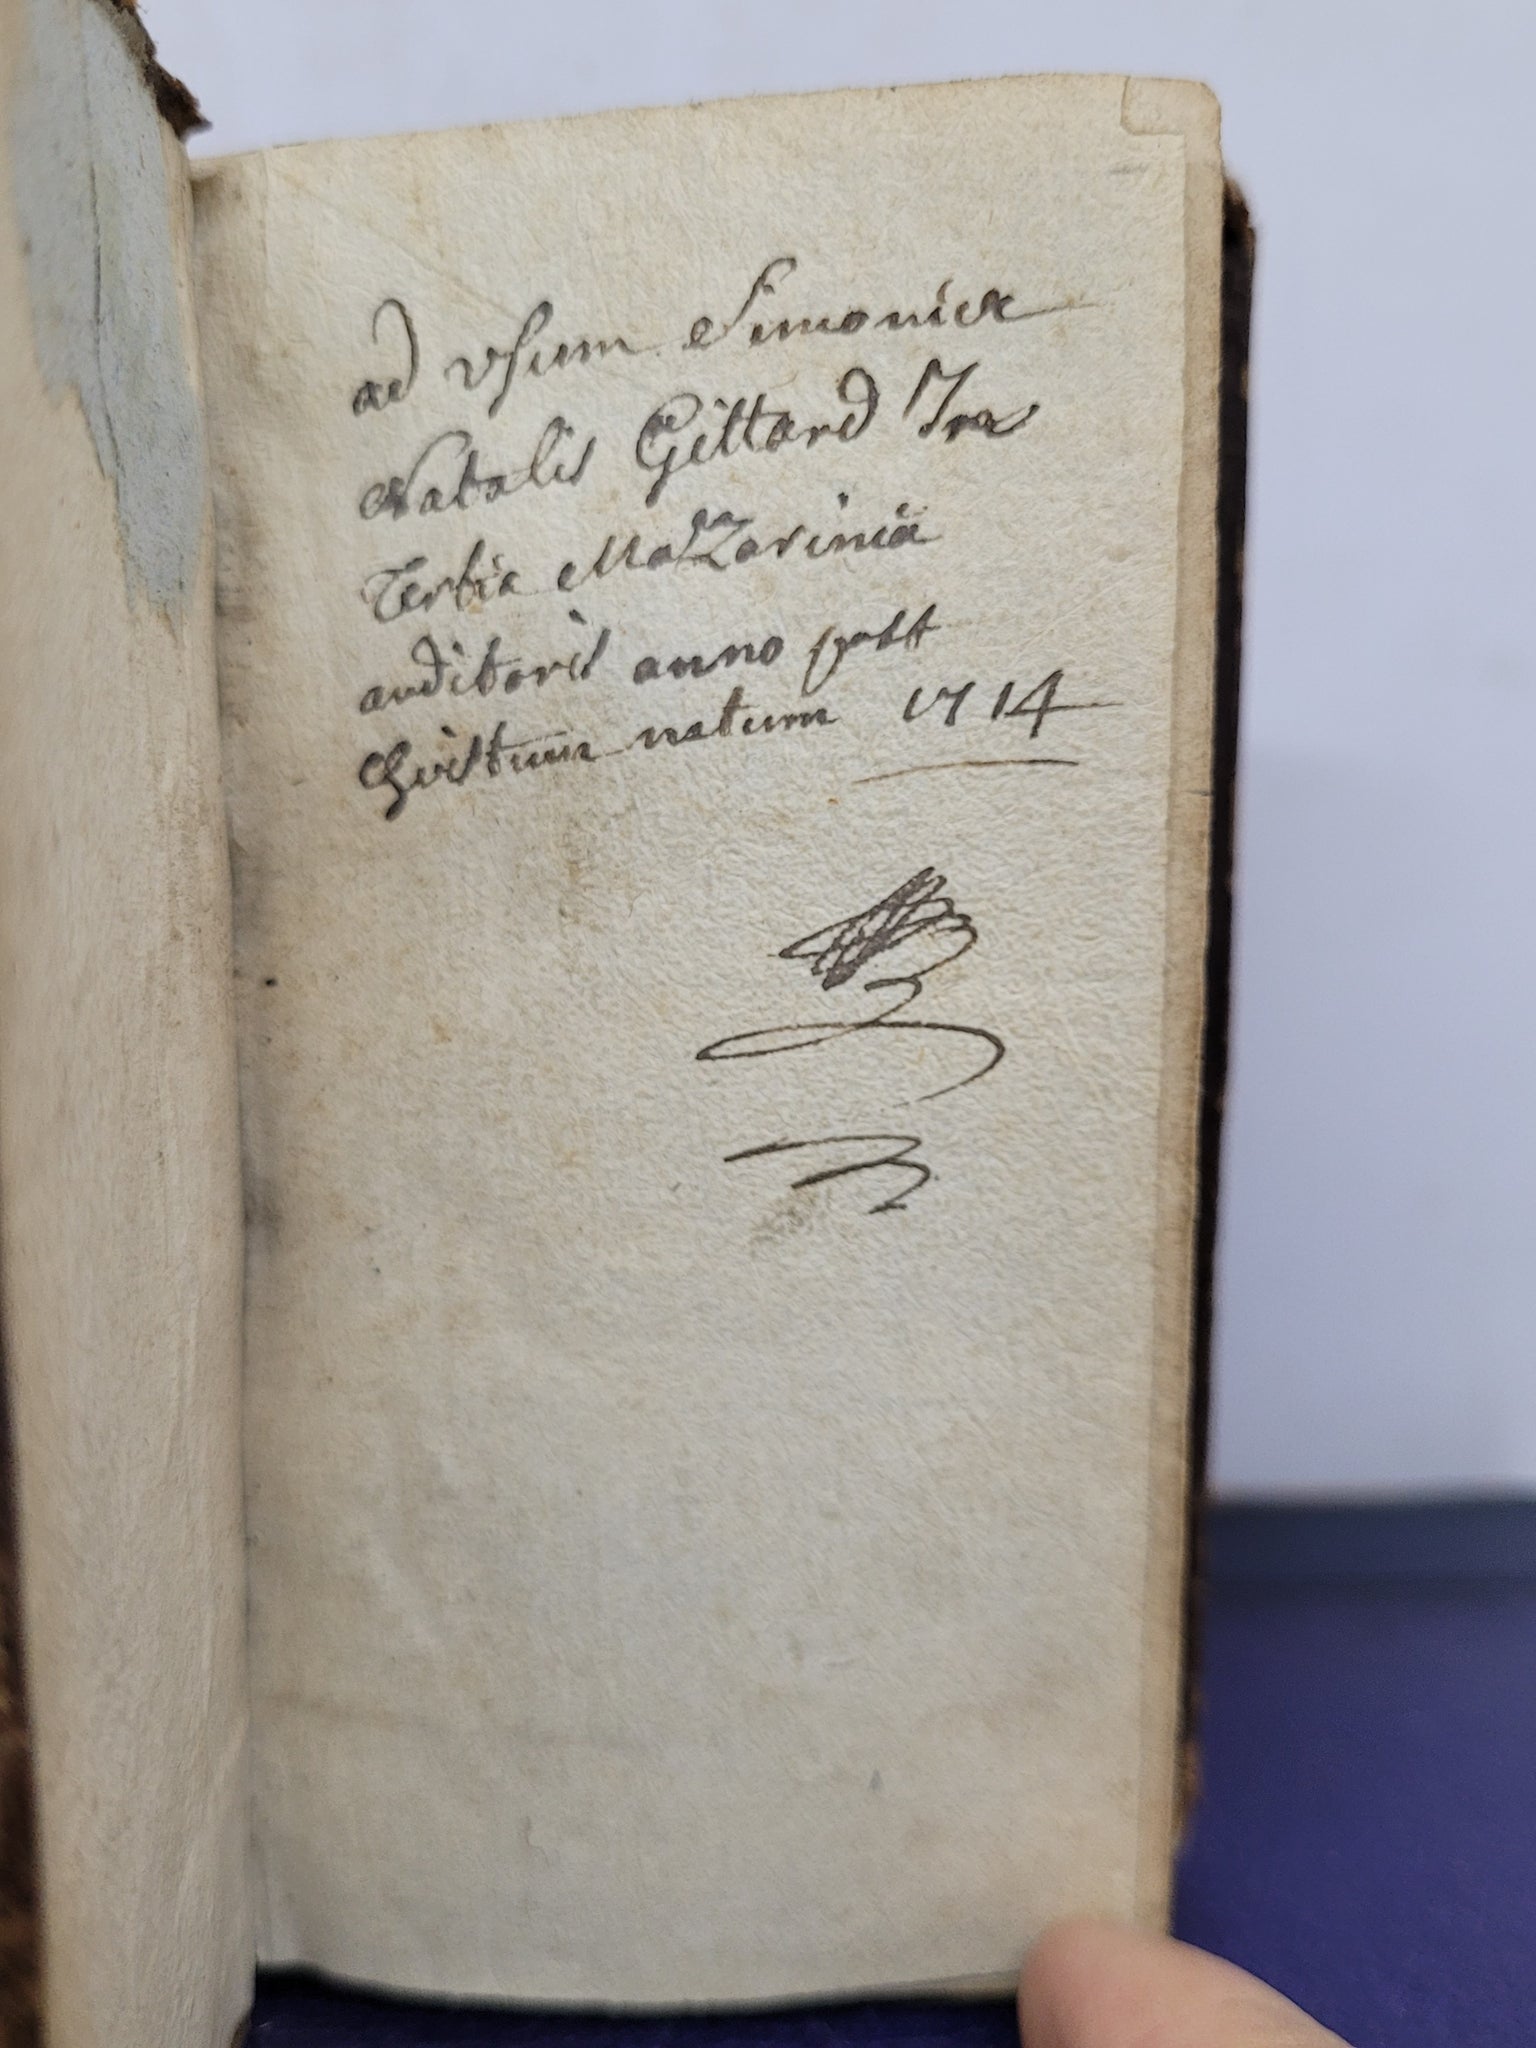 ad usum Simonis
Natalis Gittard In
Tertia Mazarinæa
auditoris anno post
Christum natum 1714